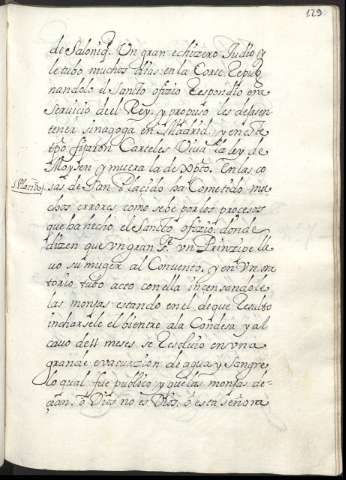 129
de Saloniq. Un gran echizero Judio y
le tubo muchos dias en la Corte Repug
nandolo el Sancto ofizio Respondio era
Servicio del Rey. y propuso les dexasen
tener sinagoga en Madrid. y en este
tpo. fixaron Carteles Viva la ley de
Moysen y muera la de Xpto. En las co
S. Plazido
sas de San Placido ha Cometido mu
chos errores como se be por los procesos
que ha hecho el Sancto ofizio. donde
dizen que un gran Sr. un Prinzipe lle
vo su muger al Convento, y en Un ora
torio tubo acto con ella inzensandole
las monjas estando en el, de que Resulto
incharsele el bientre a la Condesa y al
cavo de 11 meses se Resolvio en una
grande evacuacion de agua y Sangre,
lo qual fue publico y que las monjas de-
çian. o Dios no es Dios, o esta señora